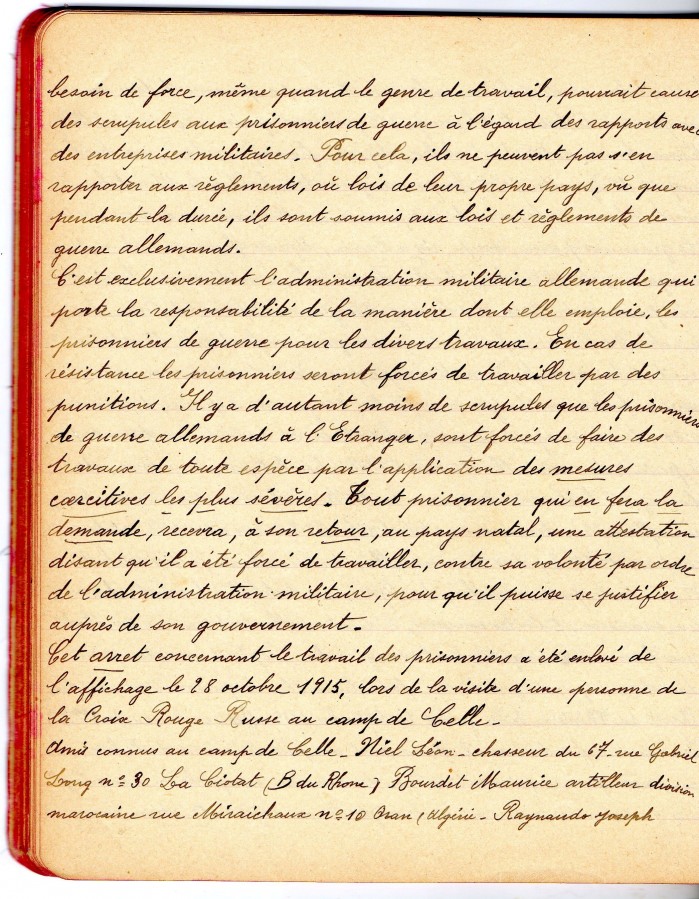 besoin de force, même quand le genre de travail, pourrait cause
des scrupules aux prisonniers de guerre à l'égard des rapports avec
des entreprises militaires. Pour cela, ils ne peuvent pas s'en
rapporter aux règlements, où lois de leur propre pays, vû que
pendant la durée, ils sont soumis aux lois et règlements de
guerre allemands.
C'est exclusivement l'administration militaire allemande qui
porte la responsabilité de la manière dont elle emploie, les
prisonniers de guerre pour les divers travaux. En cas de
résistance les prisonniers seront forcés de travailler par des
punitions. Il y a d'autant moins de scrupules que les prisonniers
de guerre allemands à l'Etranger, sont forcés de faire des
travaux de toute espèce par l'application des mesures
cœrcitives les plus sévères. Tout prisonnier qui en fera la
demande, recevra, à son retour, au pays natal, une attestation
disant qu'il a été forcé de travailler, contre sa volonté par ordre
de l'administration militaire, pour qu'il puisse se justifier
auprès de son gouvernement.
Cet arret concernant le travail des prisonniers a été enlevé de
l'affichage le 28 octobre 1915, lors de la visite d'une personne de
la Croix Rouge Russe au camp de Celle.
Amis connus au camp de Celle - Niel Léon - chasseur du 67 - rue Gabriel
Long n° 30 La Ciotat (B du Rhone) Bourdet Maurice artilleur division
marocaine rue Miraichaux n° 10 Oran (Algérie - Raynaudo Joseph